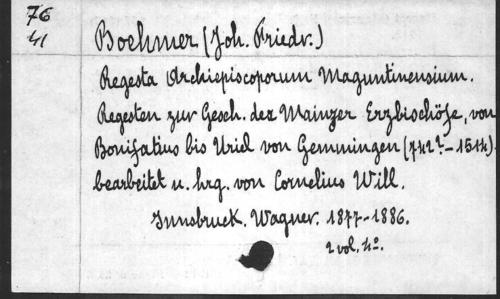 76
41
Boehmer (Joh. Friedr.)
Regesta Archiepiscoporum Maguntinensium.
Regesten zur Gesch. der Mainzer Erzbischöfe, von
Bonifatius bis Uriel von Gemmingen (742?-1514).
bearbeitet u. hrg. von Cornelius Will.
Innsbruck. Wagner. 1877-1886.
2 vol. 4°.